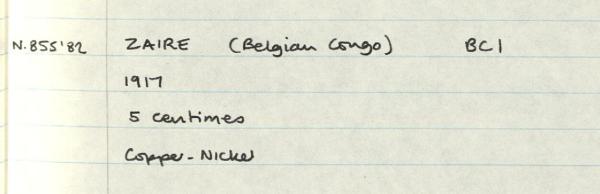 N.855'82 ZAIRE (Belgian Congo) BC1
1917
5 centimes
Copper-Nickel